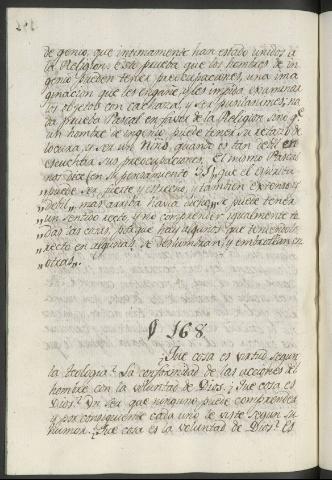 de genio, que intimamente han estado unidos à
la Religion: esto prueba que los hombres de in
genio pueden tener preocupaciones, una ima
ginacion que les engañe, y les impida examinar
los objetos con cachaza, y ser puntuales; na
da prueba Pascal en favor de la Religion, sino q.e
un hombre de ingenio puede tener su retazo de
locura, y ser un Niño, quando es tan debil en
escuchar sus preocupaciones. El mismo Pascal
nos dice (en su pensamiento que el espiritu
puede ser fuerte y estrecho, y tambien extenso y
„debil„ mas arriba havia dicho„ se puede tener
„un sentido recto y no comprender igualmente to
„das las cosas, porque hay algunos que teniendolo
„recto en algunas, se deslumbran, y embrollan en
„otras„.
§ 168
¿Que cosa es virtud segun
la teologia? La conformidad de las acciones del
hombre con la voluntad de Dios. ¿Que cosa es
Dios? Un Ser que ninguno puede comprender
y por consiguiente cada uno le viste segun su
humor. ¿Que cosa es la voluntad de Dios? Es